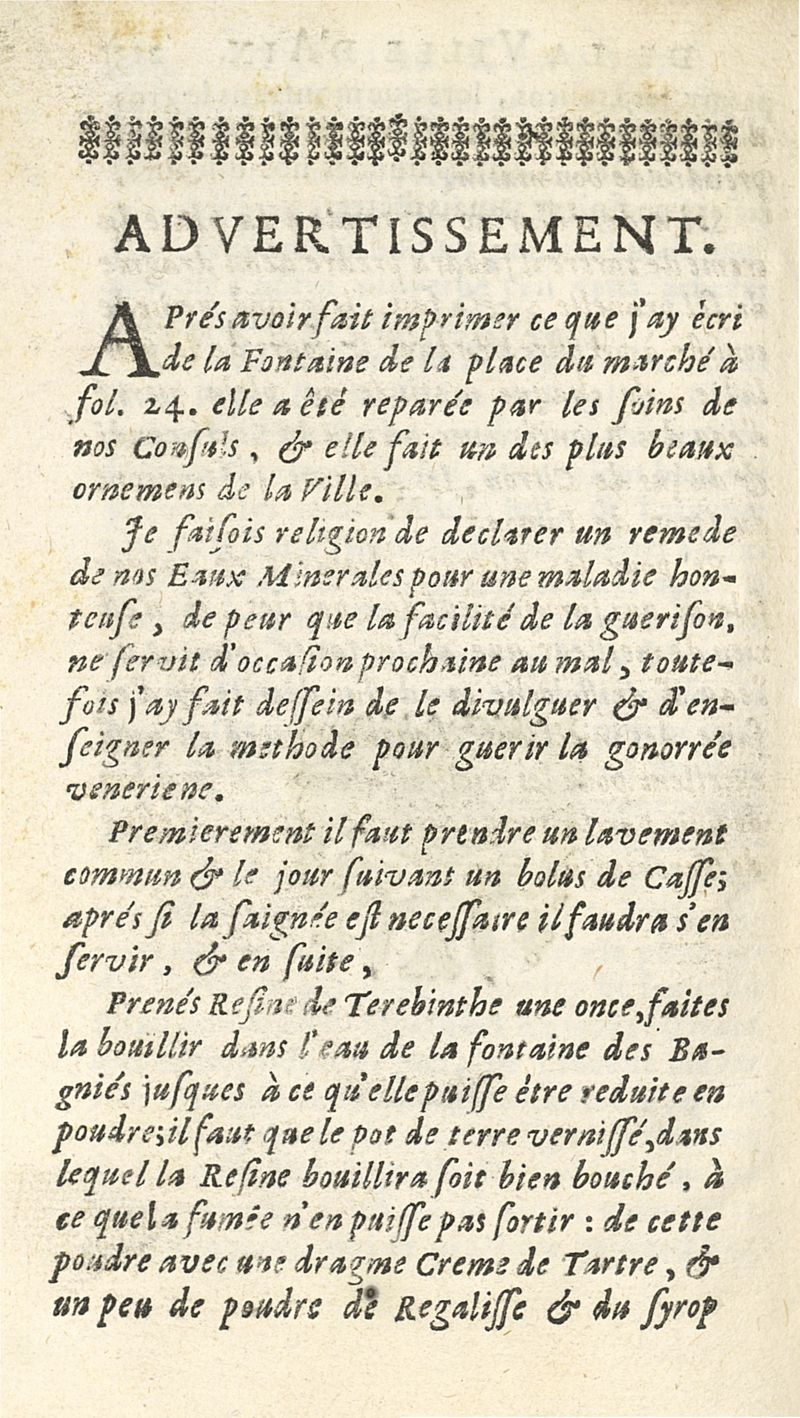 ADVERTISSEMENT.
APrés avoir fait imprimer ce que j'ay écri
de la Fontaine de la place du marché à
fol. 24. elle a êté reparée par les ſoins de
nos Conſuls, & elle fait un des plus beaux
ornemens de la Ville.
Je faiſois religion de declarer un remede
de nos Eaux Minerales pour une maladie hon-
teuſe, de peur que la facilité de la gueriſon,
ne ſervit d'occaſion prochaine au mal, toute-
fois j'ay fait deſſein de le divulguer & d'en-
ſeigner la methode pour guerir la gonorrée
veneriene.
Premierement il faut prendre un lavement
commun & le jour ſuivant un bolus de Caſſe;
aprés ſi la ſaignée eſt neceſſaire il faudra s'en
ſervir, & en ſuite,
Prenés Reſine de Terebinthe une once, faites
la bouillir dans l'eau de la fontaine des Ba-
gniés juſques à ce qu'elle puiſſe étre reduite en
poudre; il faut que le pot de terre verniſſé, dans
lequel la Reſine bouillira ſoit bien bouché, à
ce que la fumée n'en puiſſe pas ſortir : de cette
poudre avec une dragme Creme de Tartre, &
un peu de poudre de Regaliſſe & du ſyrop